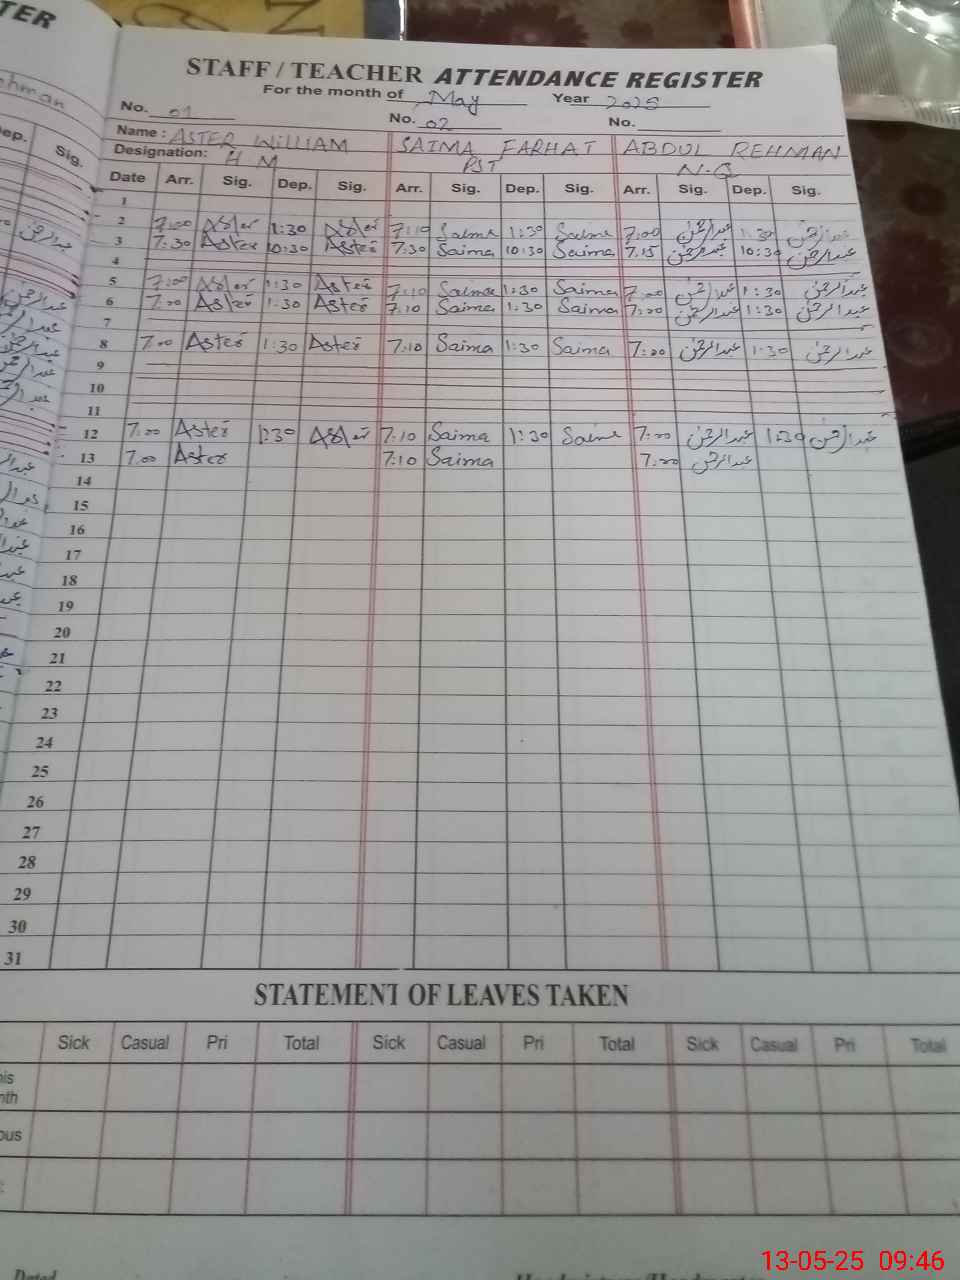 TER
STAFF / TEACHER ATTENDANCE REGISTER
For the month of May Year 2025
No. 01 No. 02 No.
Name : ASTER WILLIAM SAIMA FARHAT ABDUL REHMAN
Designation: H M PST N.Q
Date Arr. Sig. Dep. Sig. Arr. Sig. Dep. Sig. Arr. Sig. Dep. Sig.
1
2 7:00 Aster 1:30 Aster 7:10 Saima 1:30 Saima 7:00 عبدالرحمن 1:30 عبدالرحمن
3 7:30 Aster 10:30 Aster 7:30 Saima 10:30 Saima 7:15 عبدالرحمن 10:30 عبدالرحمن
4
5 7:00 Aster 1:30 Aster 7:10 Saima 1:30 Saima 7:00 عبدالرحمن 1:30 عبدالرحمن
6 7:00 Aster 1:30 Aster 7:10 Saima 1:30 Saima 7:00 عبدالرحمن 1:30 عبدالرحمن
7
8 7:00 Aster 1:30 Aster 7:10 Saima 1:30 Saima 7:00 عبدالرحمن 1:30 عبدالرحمن
9
10
11
12 7:00 Aster 1:30 Aster 7:10 Saima 1:30 Saima 7:00 عبدالرحمن 1:30 عبدالرحمن
13 7:00 Aster 7:10 Saima 7:00 عبدالرحمن
14
15
16
17
18
19
20
21
22
23
24
25
26
27
28
29
30
31
STATEMENT OF LEAVES TAKEN
Sick Casual Pri Total Sick Casual Pri Total Sick Casual Pri Total
13-05-25 09:46